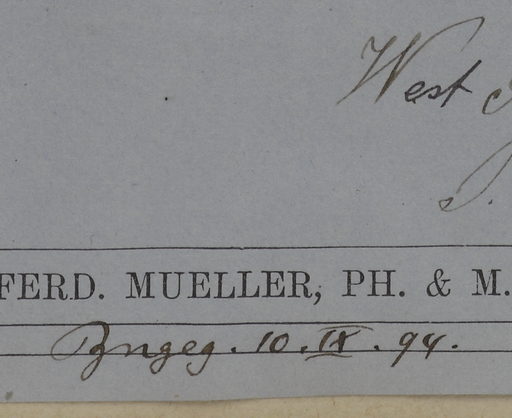 West
FERD. MUELLER, PH. & M.
10. IX. 94.